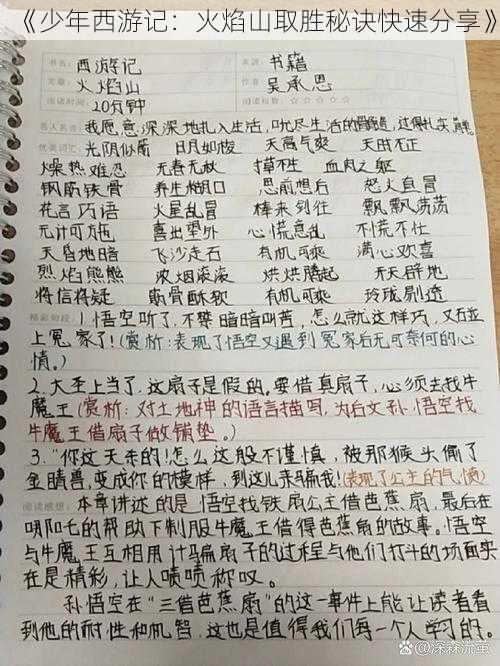 《少年西游记：火焰山取胜秘诀快速分享》
书名：西游记 来源：书籍
文章：火焰山 作者：吴承恩
阅读时间：20分钟 阅读指数：☆☆☆☆☆
名人名言：我愿意深深地扎入生活，吮尽生活的骨髓，过得扎实，简单
优美词汇：光阴似箭 日月如梭 天高气爽 天时不正
燥热难忍 无春无秋 撑不住 血肉之躯
钢筋铁骨 养生糊口 思前想后 怒火直冒
花言巧语 火星乱冒 棒来剑往 飘飘荡荡
无计可施 喜出望外 心慌意乱 不慌不忙
天昏地暗 飞沙走石 有机可乘 满心欢喜
烈焰熊熊 浓烟滚滚 烘烘腾起 开天辟地
将信将疑 筋骨酥软 有机可乘 玲珑剔透
精彩句段：1.悟空听了，不禁暗暗叫苦，怎么就这样巧，又碰
上冤家了！(赏析：表现了悟空又遇到冤家后无可奈何的心
情。)
2.大圣上当了，这扇子是假的。要借真扇子，必须去找牛
魔王(赏析：对土地神的语言描写，为后文孙悟空找
牛魔王借扇子做铺垫。)
3."你这天杀的！怎么这般不谨慎，被那猴头偷了
金睛兽，变成你的模样，到这儿来骗我！(表现了公主的气愤)
阅读感想：本章讲述的是悟空找铁扇公主借芭蕉扇，最后在
哪吒的帮助下制服牛魔王借得芭蕉扇的故事。悟空
与牛魔王互相用计骗扇子的过程与他们打斗的场面实
在是精彩，让人啧啧称叹。
孙悟空在"三借芭蕉扇"的这一事件上能让读者看
到他的耐性和机智，这也是值得我们每一个人学习的。
@深森流萤